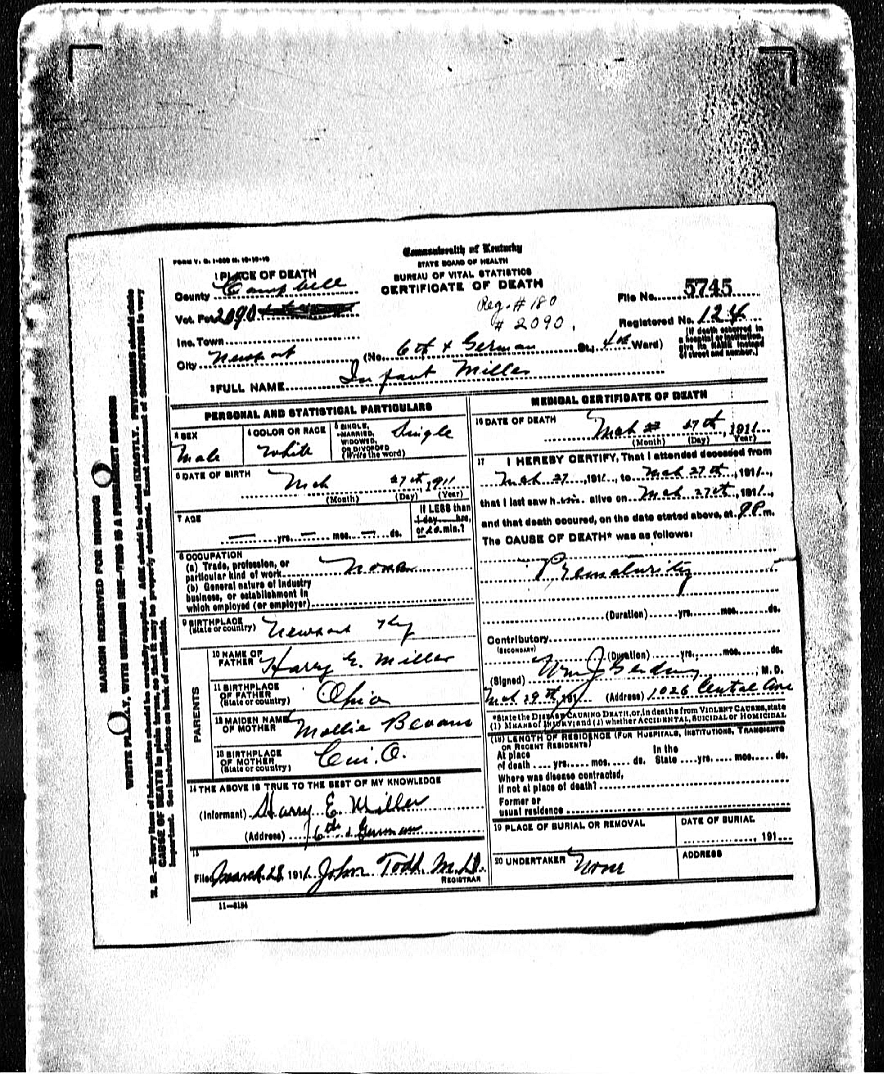 FORM V. S. 1-
Commonwealth of Kentucky
STATE BOARD OF HEALTH
BUREAU OF VITAL STATISTICS
CERTIFICATE OF DEATH
1 PLACE OF DEATH
County Campbell
Vot. Pct. 2090
Inc. Town
City Newport (No. 6th & German St; 4th Ward)
Reg. # 180
# 2090.
File No. 5745
Registered No. 124
[If death occurred in
a hospital or institution
give its NAME instead
of street and number.]
2 FULL NAME Infant Miller
PERSONAL AND STATISTICAL PARTICULARS
3 SEX
Male
4 COLOR OR RACE
White
5 SINGLE,
MARRIED,
WIDOWED,
OR DIVORCED
(Write the word)
Single
6 DATE OF BIRTH
Mch 27th, 1911
(Month) (Day) (Year)
7 AGE
— yrs. — mos. — ds.
If LESS than
1 day hrs.
or 20 min.?
8 OCCUPATION
(a) Trade, profession, or
particular kind of work None
(b) General nature of industry
business, or establishment in
which employed (or employer)
9 BIRTHPLACE
(State or country) Newport Ky
PARENTS
10 NAME OF
FATHER Harry E. Miller
11 BIRTHPLACE
OF FATHER
(State or country) Ohio
12 MAIDEN NAME
OF MOTHER Mollie Bevans
13 BIRTHPLACE
OF MOTHER
(State or country) Cin. O.
14 THE ABOVE IS TRUE TO THE BEST OF MY KNOWLEDGE
(Informant) Harry E. Miller
(Address) 6th & German
15
Filed March 28 1911, John Todd M.D.
REGISTRAR
11-3184
MEDICAL CERTIFICATE OF DEATH
16 DATE OF DEATH
Mch 27th, 1911
(Month) (Day) (Year)
17 I HEREBY CERTIFY, That I attended deceased from
Mch 27, 1911, to Mch 27th, 1911,
that I last saw him alive on Mch 27th, 1911,
and that death occured, on the date stated above, at 9 P.m.
The CAUSE OF DEATH* was as follows:
Prematurity
(Duration) yrs. mos. ds.
Contributory
(SECONDARY)
(Duration) yrs. mos. ds.
(Signed) Wm J, M.D.
Mch 29th, 191 (Address) 1026 Central Ave
*State the DISEASE CAUSING DEATH, or, in deaths from VIOLENT CAUSES, state
(1) MEANS OF INJURY; and (2) whether ACCIDENTAL, SUICIDAL or HOMICIDAL
(18) LENGTH OF RESIDENCE (FOR HOSPITALS, INSTITUTIONS, TRANSIENTS
OR RECENT RESIDENTS)
At place
of death yrs. mos. ds.
In the
State yrs. mos. ds.
Where was disease contracted,
if not at place of death?
Former or
usual residence
19 PLACE OF BURIAL OR REMOVAL
DATE OF BURIAL
191
20 UNDERTAKER None
ADDRESS
MARGIN RESERVED FOR BINDING
WRITE PLAINLY, WITH UNFADING INK—THIS IS A PERMANENT RECORD
N. B.—Every item of information should be carefully supplied. AGE should be stated EXACTLY. PHYSICIANS should state
CAUSE OF DEATH in plain terms, so that it may be properly classified. Exact statement of OCCUPATION is very
important. See instructions on back of certificate.